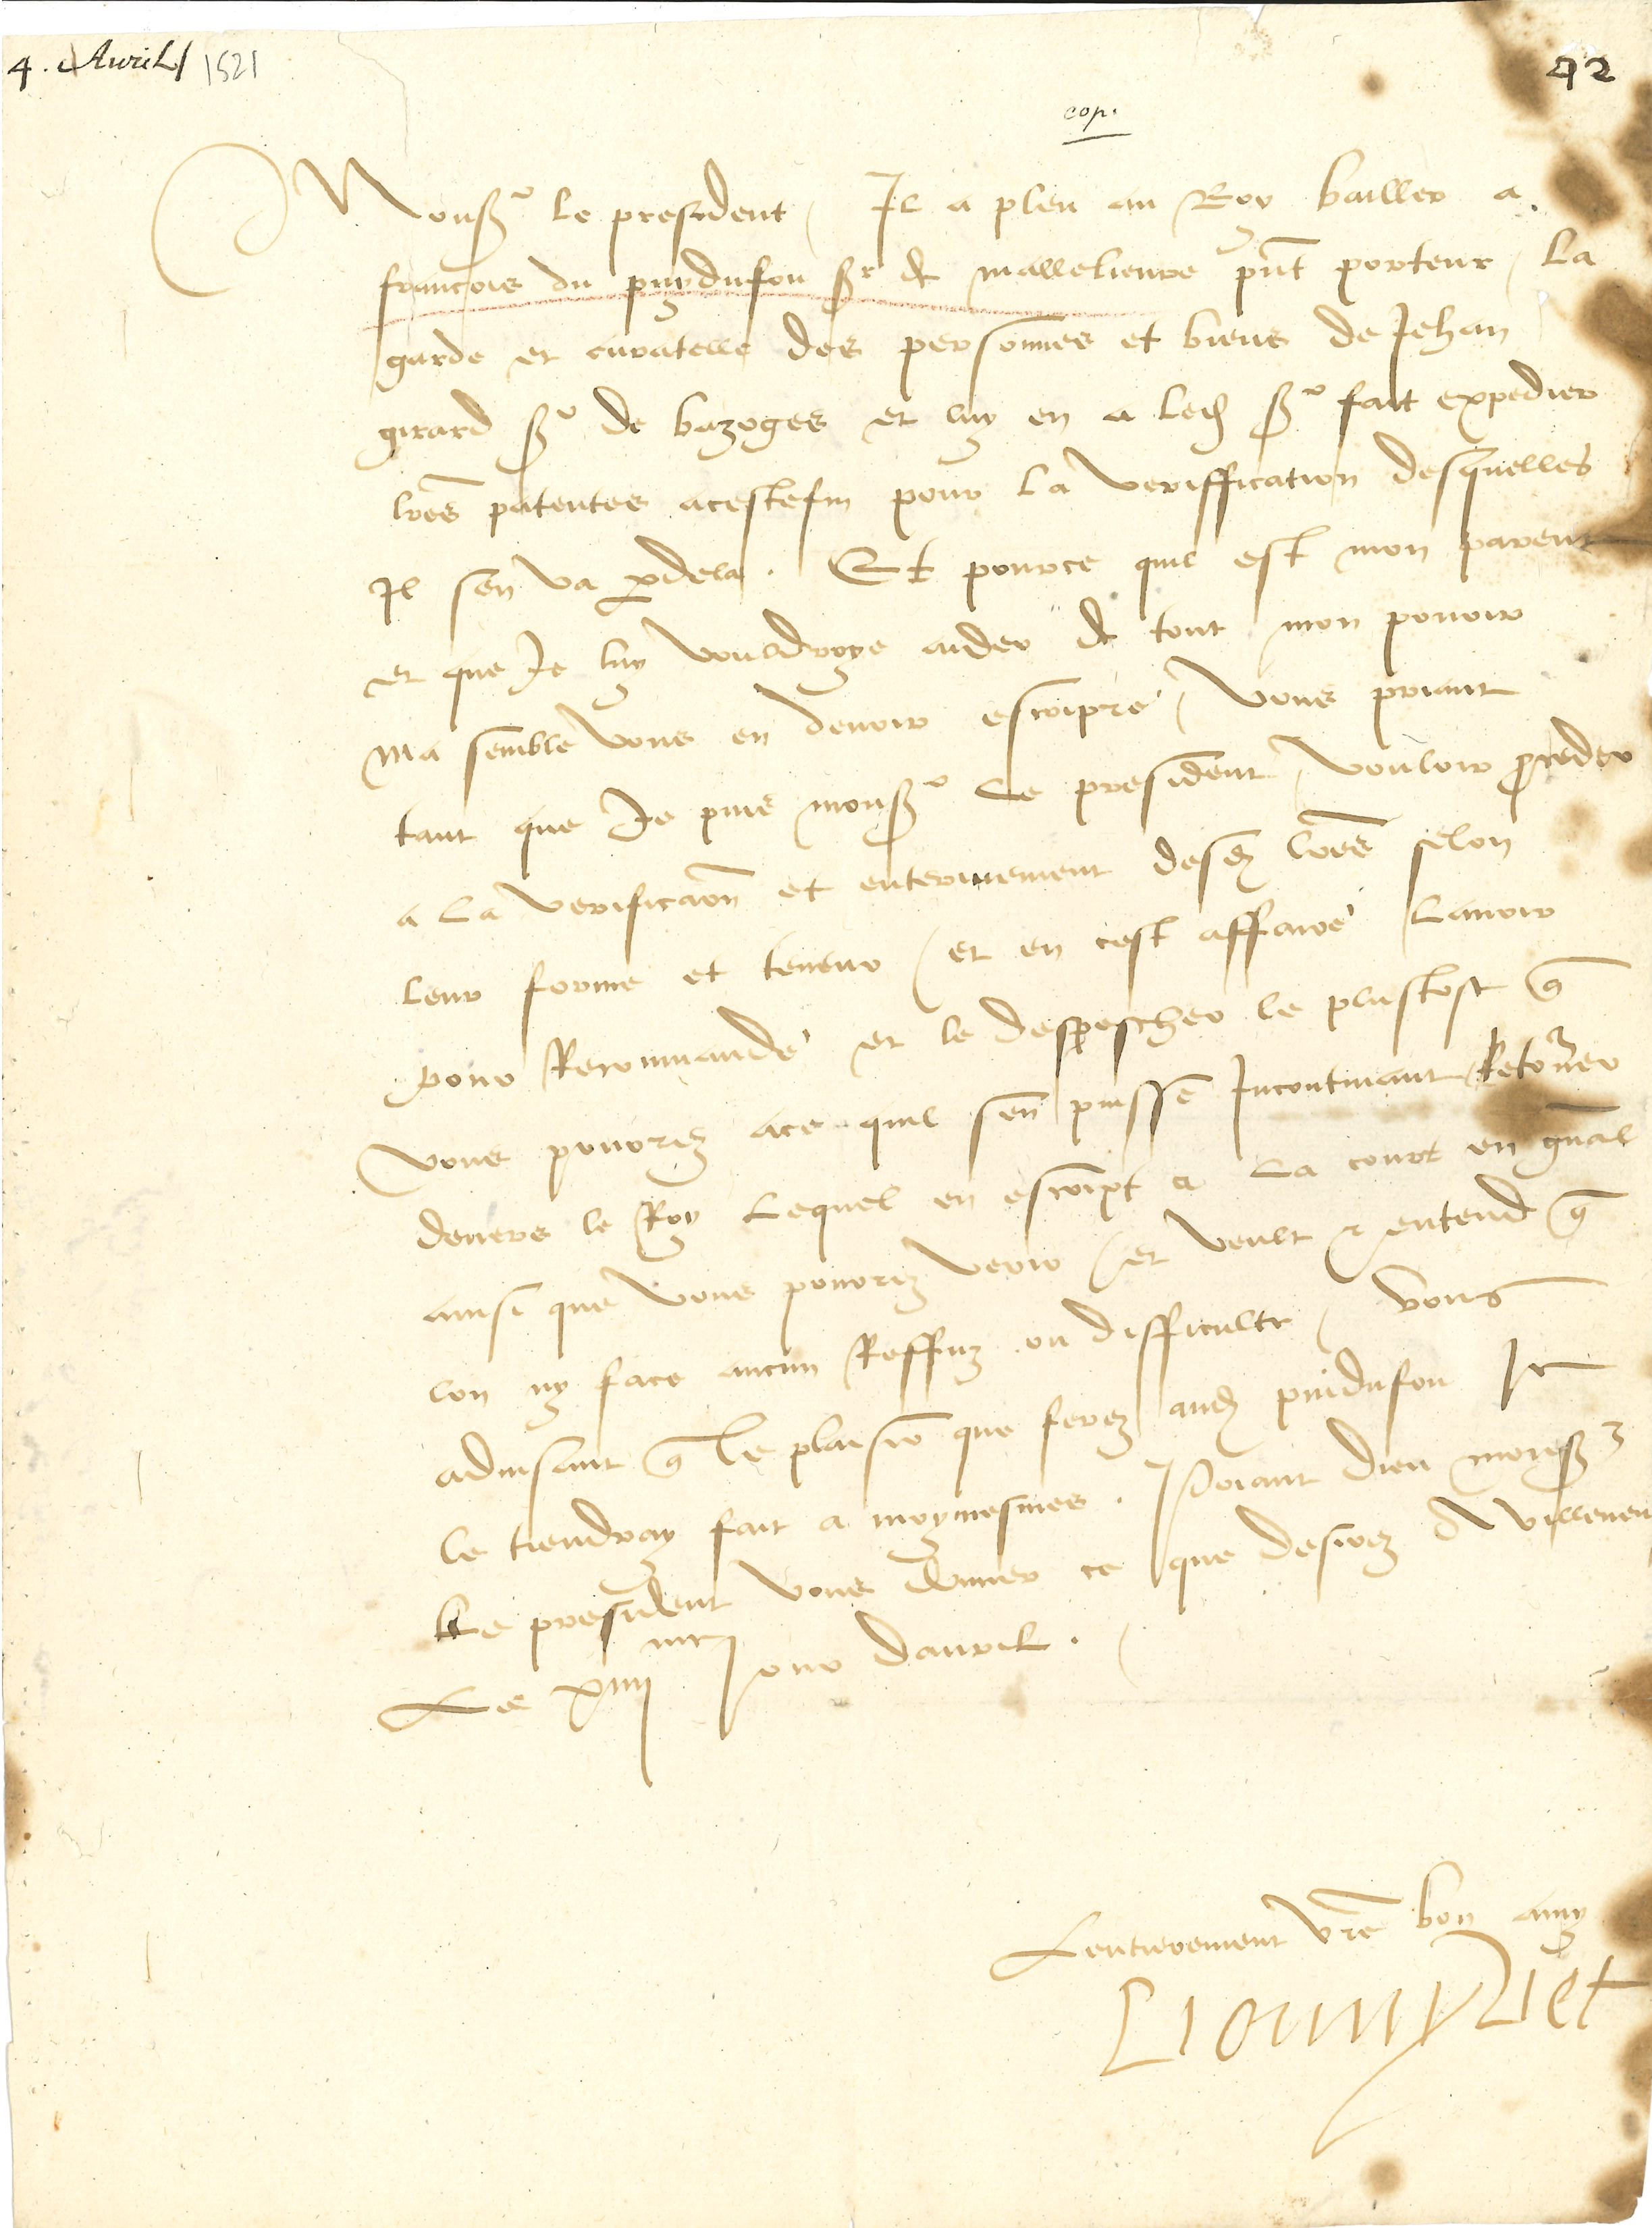 4. Avril 1521
92
cop.
Monsr le president / Il a pleu au Roy bailler a
francois du puydufou sr de mallelievre pnt porteur / La
garde et curatelle des personnes et biens de Jehan
girard sr de bazoges et luy en a led sr fait expedier
lres patentes acestefin pour la veriffication desquelles
Il sen va pdela. Et pource quil est mon parent
et que Je luy vouldroye aider de tout mon povoir
ma semble vous en devoir escripre / vous priant
tant que Je puis monsr Le president / vouloir proceder
a La verificaon et enterinement desd lres selon
leur forme et teneur / et en cest affaire Lavoir
pour Recommande et le despescher le plustost q
vous pourrez ace quil sen puisse Incontinant Retorner
devers le Roy Lequel en escript a La court en gnal
ainsi que vous pourrez veoir / et veult et entend q
lon ny face aucun Reffuz ou difficulte / vous
advisant q Le plaisir que ferez aud puidufou Je
le tiendray fait a moymesmes. Priant dieu monsr
Le president vous donner ce que desirez A villeneu
Le iiii Jour davril.
Lentierement vre bon amy